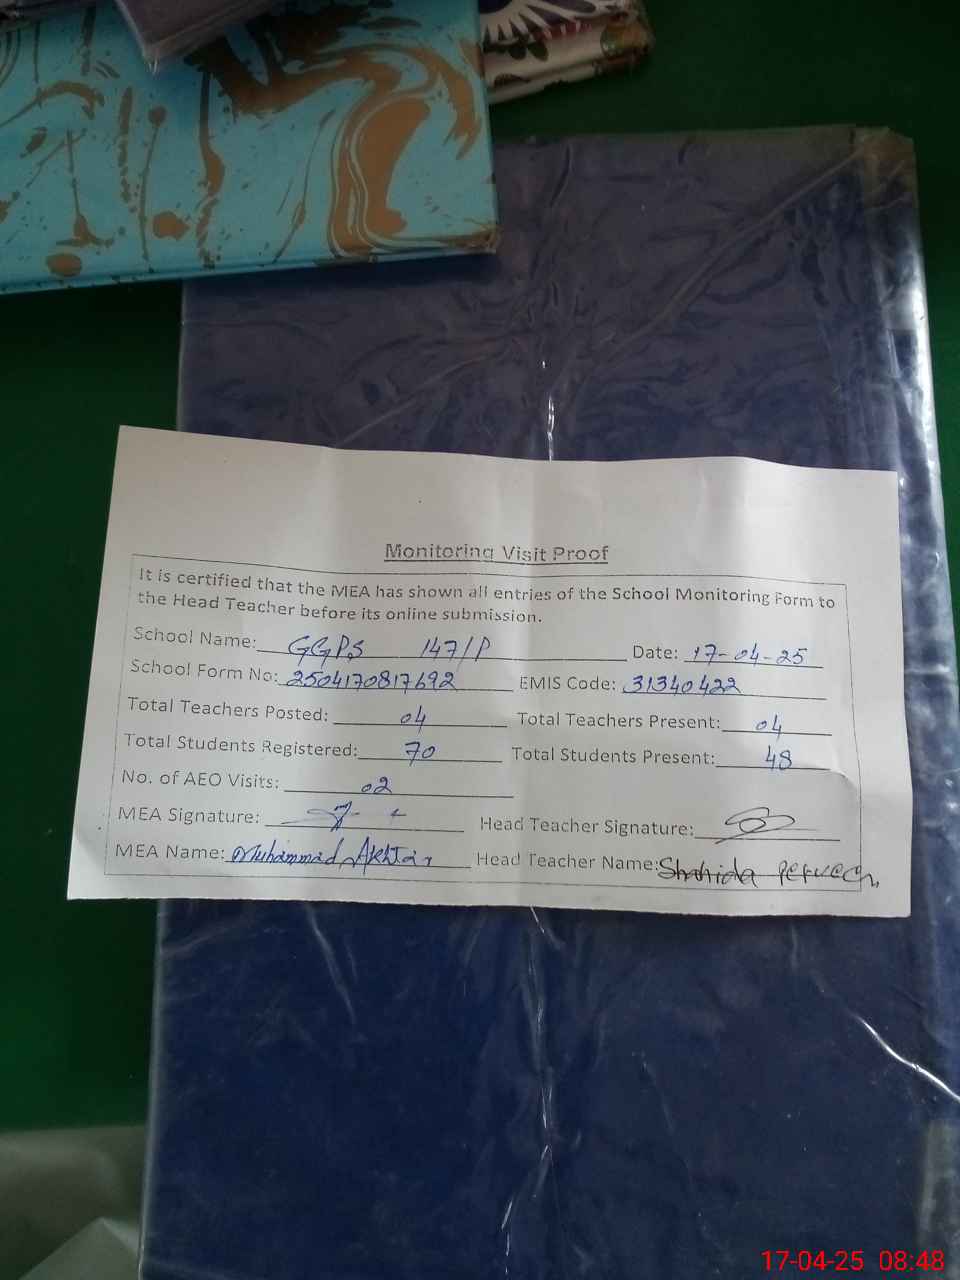 Monitoring Visit Proof
It is certified that the MEA has shown all entries of the School Monitoring Form to
the Head Teacher before its online submission.
School Name: GGPS 147/P Date: 17-04-25
School Form No: 2504170817692 EMIS Code: 31340422
Total Teachers Posted: 04 Total Teachers Present: 04
Total Students Registered: 70 Total Students Present: 48
No. of AEO Visits: 02
MEA Signature: Head Teacher Signature:
MEA Name: Muhammad Akhtar Head Teacher Name: Shahida Perveen
17-04-25 08:48